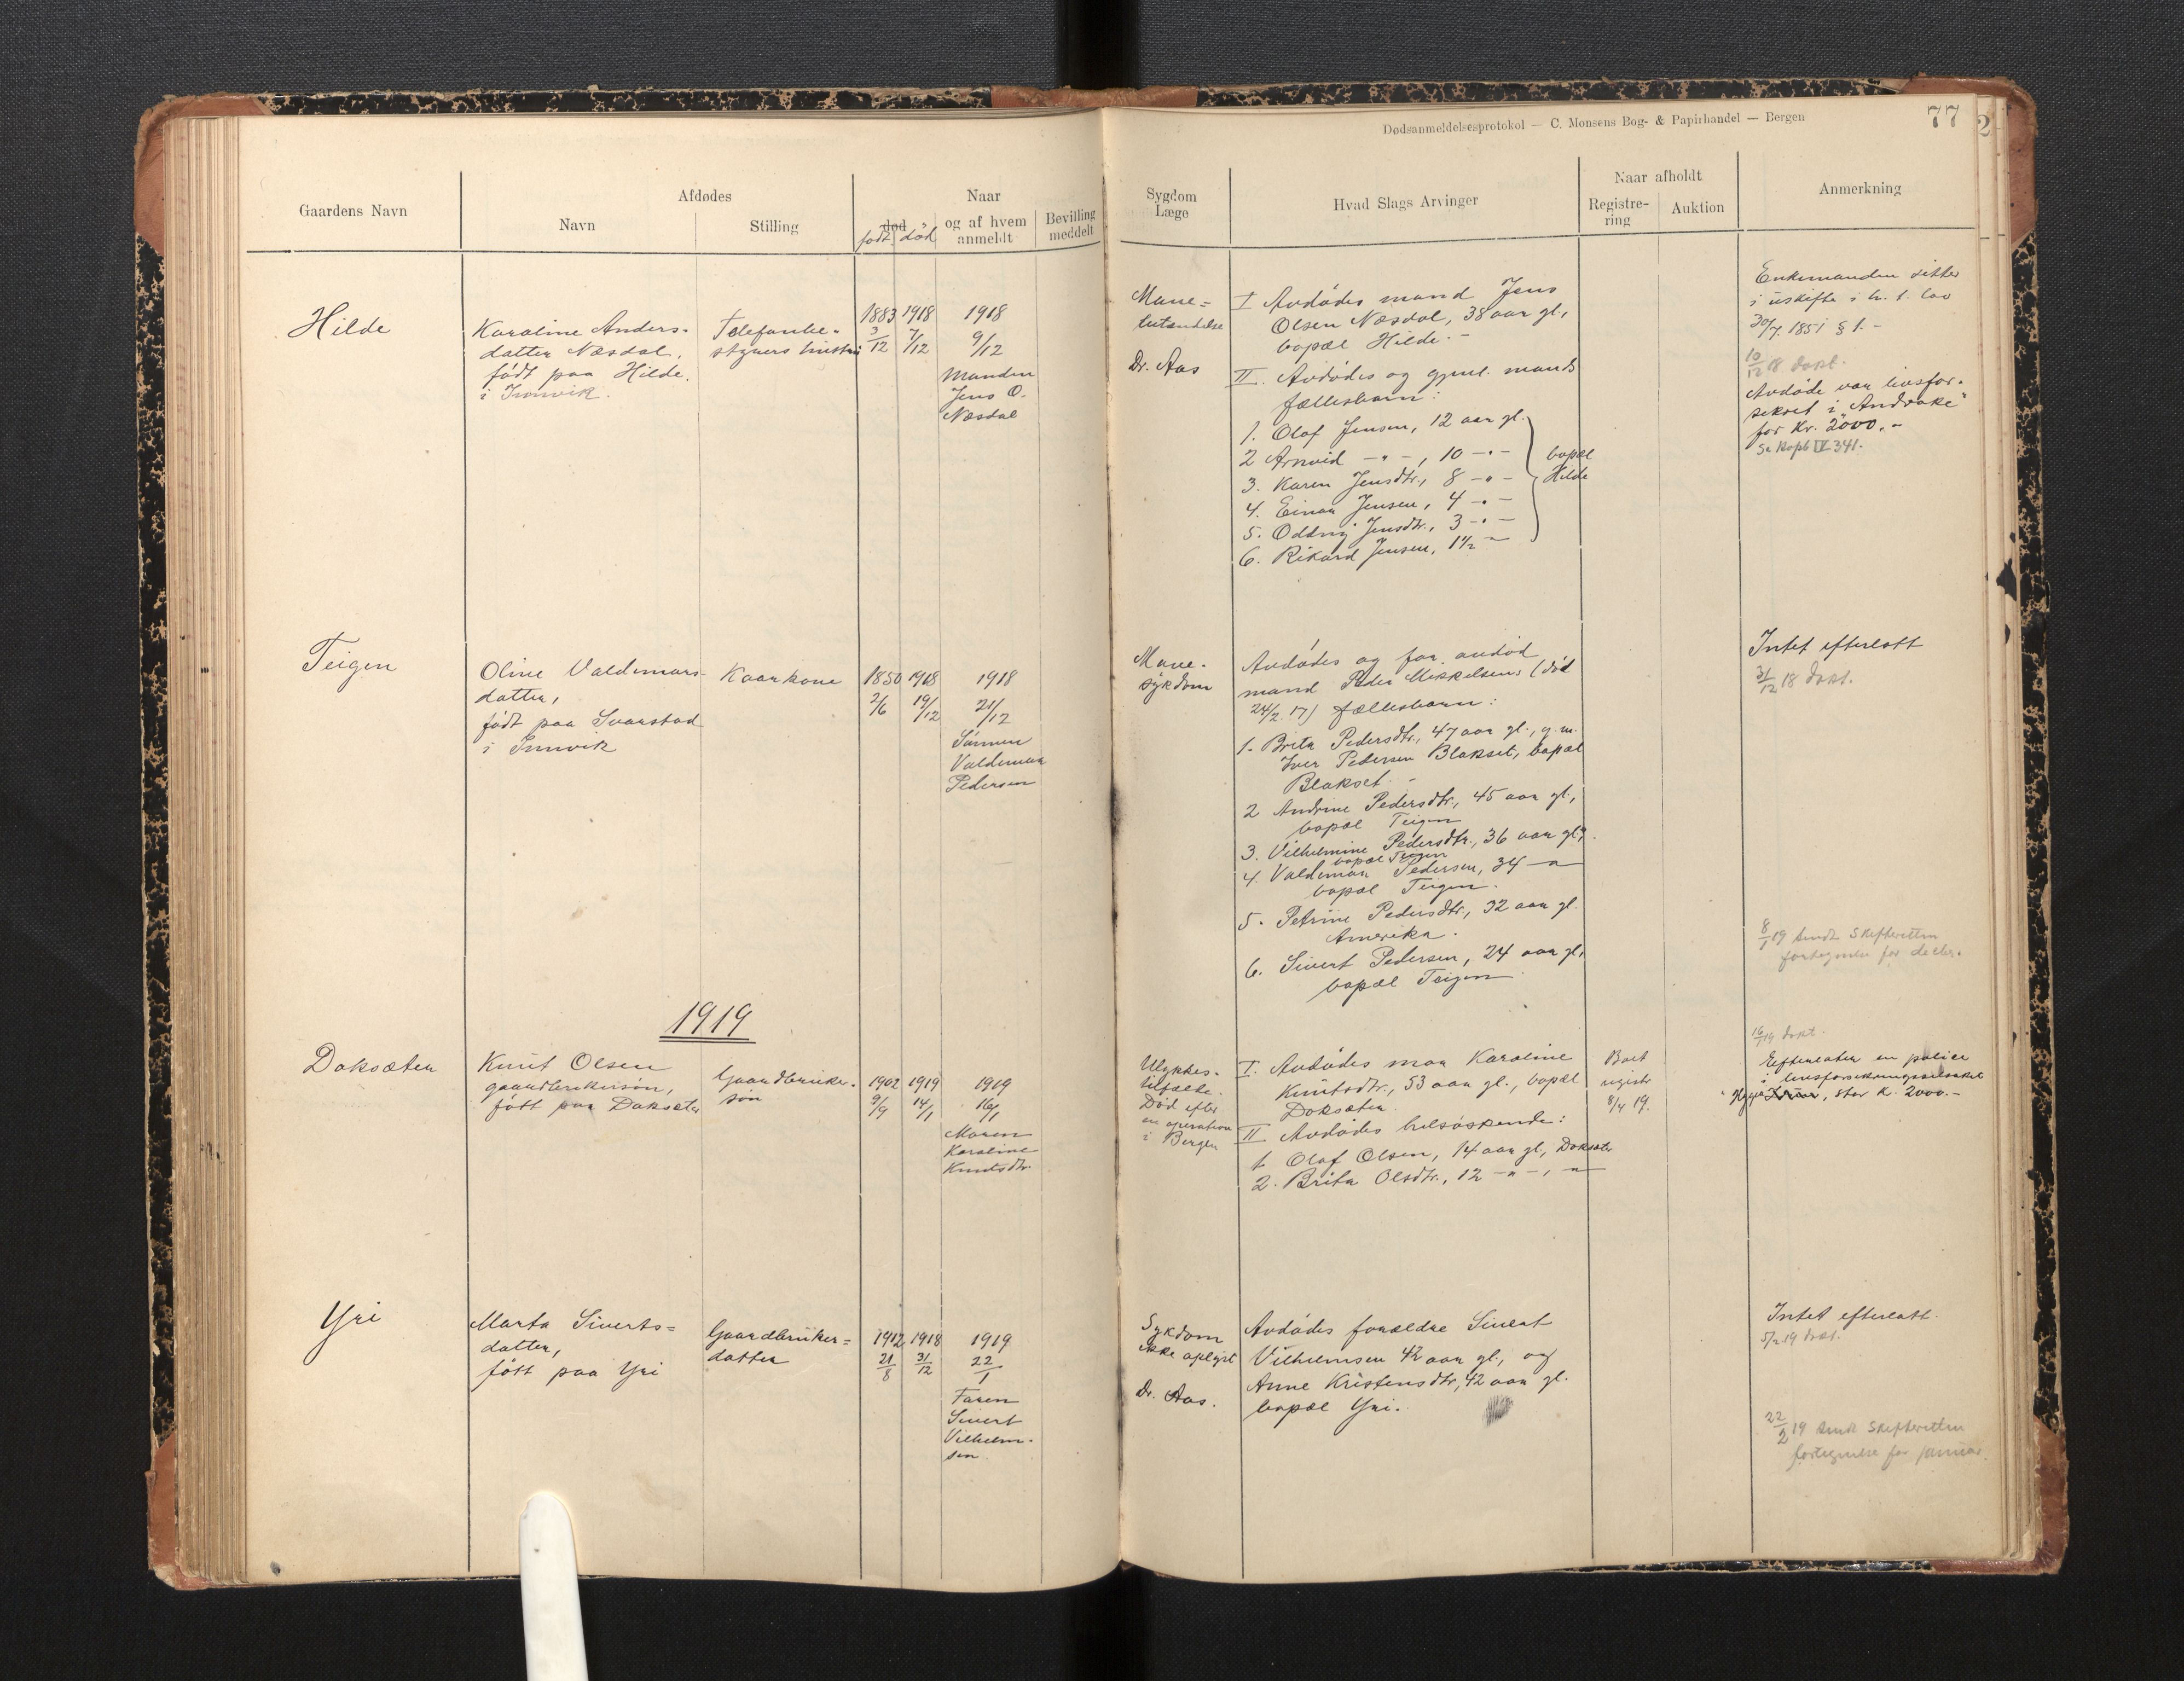 Dødsanmeldelsesprotokol — C. Monsens Bog- & Papirhandel — Bergen
77
2
Gaardens Navn
Afdødes
Navn
Stilling
Naar
død
født
død
og af hvem
anmeldt
Bevilling
meddelt
Sygdom
Læge
Hvad Slags Arvinger
Naar afholdt
Registre-
ring
Auktion
Anmerkning
Hilde
Karoline Anders-
datter Næsdal,
født paa Hilde.
i Innvik.
Telefonbe-
styrers hustru
1883
3/12
1918
7/12
1918
9/12
Manden
Jens O.
Næsdal
Mave=
betændelse
Dr. Aas
I Avdødes mand Jens
Olsen Næsdal, 38 aar gl.,
bopæl Hilde. -
II. Avdødes og gjenl. mands
fællesbarn:
1. Olaf Jensen, 12 aar gl.
2 Arnvid - " - , 10 - " -
3. Karen Jensdtr., 8 - " -
4. Einar Jensen, 4 - " -
5. Oddny Jensdtr., 3 - " -
6. Rikard Jensen, 1½ "
bopæl
Hilde
Enkemanden sitter
i uskifte i h. t. lov
30/7 1851 § 1. -
10/12 18 dokt.
Avdøde var livsfor-
sekret i "Andvake"
for Kr. 2000,-
Se Kopb IV 341.
Teigen
Oline Valdemars-
datter,
født paa Svarstad
i Innvik
Kaarkone
1850
2/6
1918
19/12
1918
21/12
Sønnen
Valdemar
Pedersen
Mave-
sykdom
Avdødes og før avdød
mand Peder Mikkelsens (død
24/2 17) fællesbarn:
1- Brita Pedersdtr., 47 aar gl., g. m.
Iver Pedersen Blakset, bopæl
Blakset. -
2 Andrine Pedersdtr., 45 aar gl.,
bopæl Teigen
3. Vilhelmine Pedersdtr., 36 aar gl.,
bopæl Teigen
4. Valdemar Pedersen, 34 - "
bopæl Teigen.
5. Petrine Pedersdtr., 32 aar gl.
Amerika.
6. Sivert Pedersen, 24 aar gl.,
bopæl Teigen
Intet efterlatt
31/12 18 dokt.
8/1 19 sendt Skifteretten
fortegnelse for decbr.
1919
Doksæter
Knut Olsen
gaardbrukersøn,
født paa Doksæter
Gaardbruker-
søn
1902
9/9
1919
14/1
1919
16/1
Moren
Karoline
Knutsdtr.
Ulykkes-
tilfælde.
Død efter
en operation
i Bergen
I. Avdødes mor Karoline
Knutsdtr., 53 aar gl., bopæl
Doksæter.
II Avdødes helsøskende:
1. Olaf Olsen, 14 aar gl., Doksæter
2. Brita Olsdtr., 12 - " - , - "
Boet
registr
8/4 19.
16/1 19 dokt.
Efterlater en police
i livsforsekringsselskabet
, stor k. 2000.-
Yri
Marta Siverts=
datter,
født paa Yri
Gaardbruker=
datter
1912
21/8
1918
31/12
1919
22/1
Faren
Sivert
Vilhelm-
sen
Sykdom
ikke oplyst
Dr. Aas.
Avdødes forældre Sivert
Vilhelmsen 42 aar gl., og
Anne Kristensdtr, 42 aar gl.
bopæl Yri.
Intet efterlatt.
5/2 19 dokt.
22/2 19 sendt Skifteretten
fortegnelse for januar.